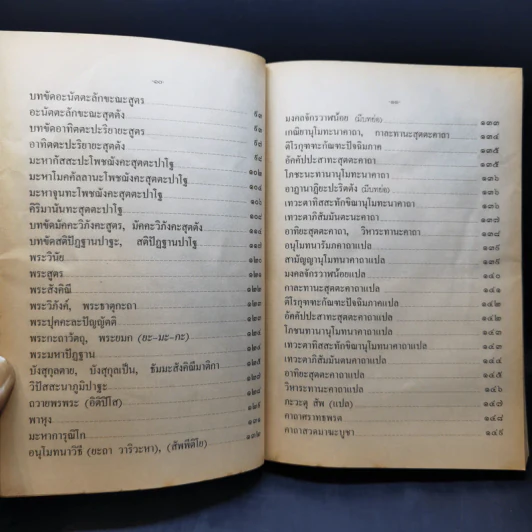 บทขัดอะนัตตะลักขะณะสูตร
อะนัตตะลักขะณะสุตตัง
บทขัดอาทิตตะปะริยายะสูตร
อาทิตตะปะริยายะสุตตัง
มะหากัสสะปะโพชฌังคะสุตตะปาโฐ ๑๐๒
มะหาโมคคัลลานะโพชฌังคะสุตตะปาโฐ
มะหาจุนทะโพชฌังคะสุตตะปาโฐ
คิริมานันทะสุตตะปาโฐ
บทขัดมัคคะวิภังคะสูตร, มัคคะวิภังคะสุตตัง
บทขัดสติปัฏฐานปาฐะ, สติปัฏฐานปาโฐ
พระวินัย ๑๒๐
พระสูตร
พระสังคิณี
พระวิภังค์, พระธาตุกะถา
พระปุคคะละปัญญัตติ
พระกะถาวัตถุ, พระยมก (ยะ-มะ-กะ)
พระมหาปัฏฐาน
บังสุกุลตาย, บังสุกุลเป็น, ธัมมะสังคิณีมาติกา
วิปัสสะนาภูมิปาฐะ
ถวายพรพระ (อิติปิโส)
พาหุง
มะหาการุณิโก
อนุโมทนาวิธี (ยะถา วาริวะหา), (สัพพีติโย)
มงคลจักรวาฬน้อย (มีบทย่อ) ๑๓๓
เกณิยานุโมทนาคาถา, กาละทานะสุตตะคาถา ๑๓๔
ติโรกุฑฑะกัณฑะปัจฉิมภาค ๑๓๕
อัคคัปปะสาทะสุตตะคาถา ๑๓๕
โภชะนะทานานุโมทนาคาถา ๑๓๖
อาฏานาฏิยะปะริตตัง (มีบทย่อ) ๑๓๖
เทวะตาทิสสะทักขิณานุโมทนาคาถา ๑๓๖
เทวะตาภิสัมมันตะนะคาถา ๑๓๗
อาทิยะสุตตะคาถา, วิหาระทานะคาถา ๑๓๘
อนุโมทนารัมภคาถาแปล ๑๓๙
สามัญญานุโมทนาคาถาแปล ๑๓๙
มงคลจักรวาฬน้อยแปล ๑๔๐
กาละทานะสุตตะคาถาแปล ๑๔๑
ติโรกุฑฑะกัณฑะปัจฉิมภาคแปล ๑๔๒
อัคคัปปะสาทะสุตตะคาถาแปล ๑๔๓
โภชนทานานุโมทนาคาถาแปล
เทวะตาทิสสะทักขิณานุโมทนาคาถาแปล
เทวะตาภิสัมมันตนคาถาแปล
อาทิยะสุตตะคาถาแปล
วิหาระทานะคาถาแปล ๑๔๖
ภะวะตุ สัพ (แปล) ๑๔๗
คาถาศราทธพรต ๑๔๘
คาถาสวดมาฆะบูชา ๑๔๙